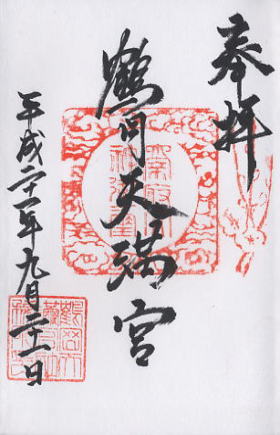 奉拝
鶴岡天満宮
平成二十一年九月二十一日